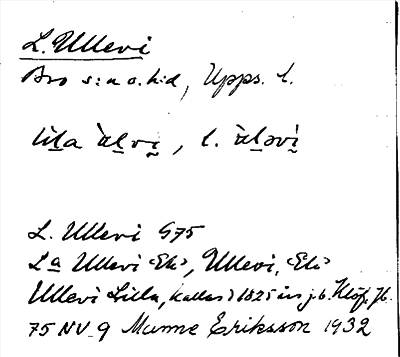 L. Ullevi
Bro s:n o. h:d, Upps. l.
lìl̲a ùl̲vi̲, l. ùl̲əvi̲
L. Ullevi G75
La Ullevi <Ek>, Ullevi, <Ek>
Ullevi Lilla, kallas i 1825 års j.b. Klöf. Jb.
75 NV 9 Manne Eriksson 1932